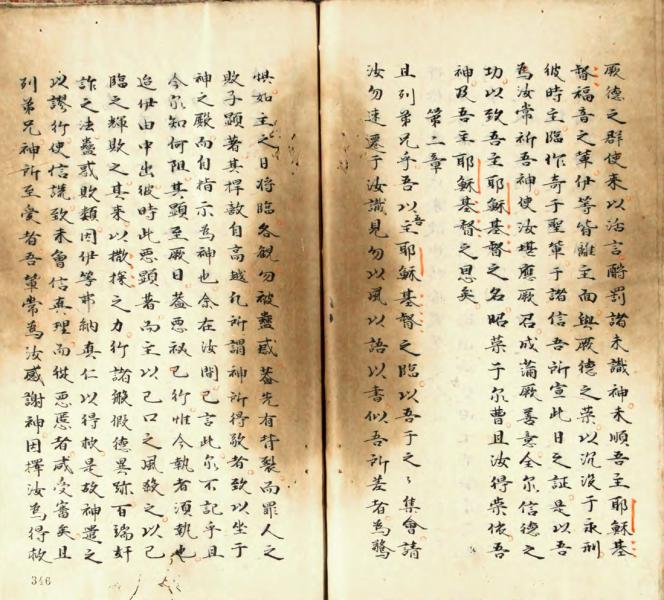 厥德之群使来以活言酧罰諸未識神未順吾主耶穌基
督福音之輩伊等皆離主而與厥德之荣以沉没于永刑
彼時主臨作奇于聖輩于諸信吾所宣此日之証是以吾
為汝常祈吾神使汝堪應厥召成蒲厥善意全尔信德之
功以致吾主耶穌基督之名昭荣于尔曹且汝得荣依吾
神及吾主耶穌基督之恩矣
第二章
且列弟兄乎吾以吾主耶穌基督之臨以吾于之之集會請
汝勿速遷于汝識見勿以風以語以書似吾所差者為驚
惧如主之日将臨各観勿被蠱惑盖先有背裂而罪人之
敗子顕著其捍敵自高越凡所謂神所得欽者致以坐于
神之殿而自指示為神也余在汝間已言此尔不記乎且
今尔知何阻其顕至厥日盖悪秘已行惟今執者須執也
迨伊由中出彼時此悪顕著而主以己口之風殺之以己
臨之輝敗之其来以撒探之力行諸般假德異跡百端奸
詐之法蠱惑欺類因伊等弗納真仁以得救是故神遣之
以謬行使信謊致未會信真理而從悪慝者咸受審矣且
列弟兄神所至愛者吾輩常為汝感謝神因擇汝為得救
346